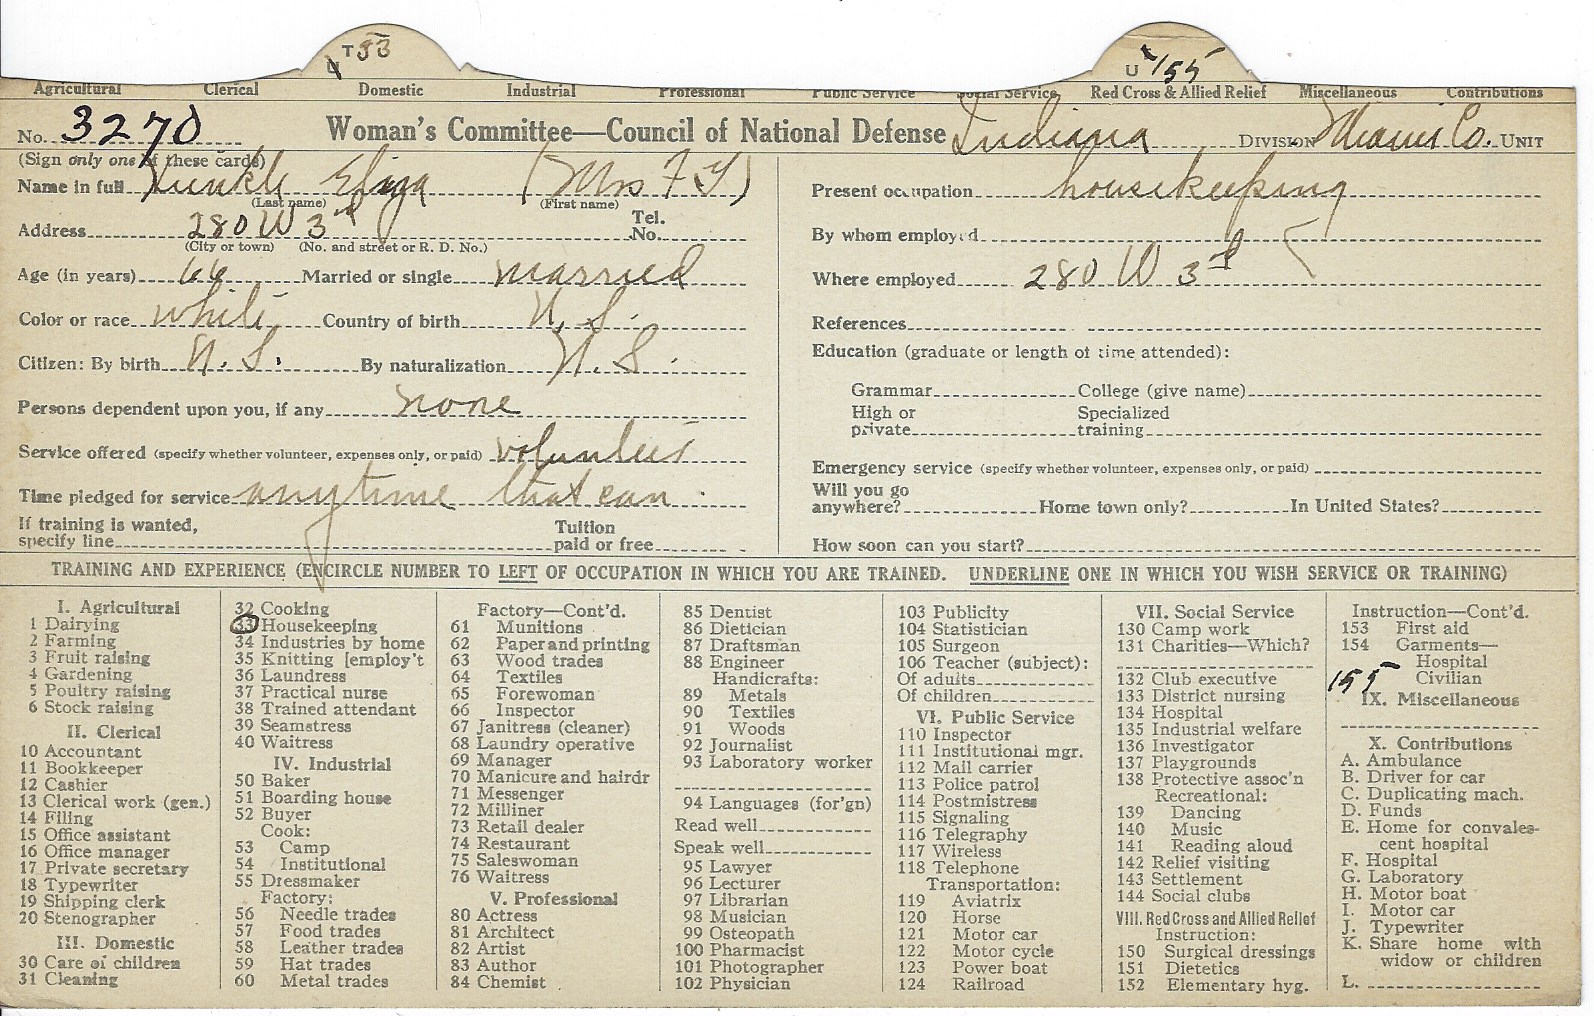 T 33
U 155
Agricultural Clerical Domestic Industrial Professional Public Service Social Service Red Cross & Allied Relief Miscellaneous Contributions
No. 3270 Woman's Committee—Council of National Defense Indiana DIVISION Miami Co. UNIT
(Sign only one of these cards)
Name in full Kunkle Eliza (Mrs F Y)
(Last name) (First name)
Address 280 W 3rd Tel. No.
(City or town) (No. and street or R. D. No.)
Age (in years) 66 Married or single married
Color or race white Country of birth U. S.
Citizen: By birth U. S. By naturalization U. S.
Persons dependent upon you, if any none
Service offered (specify whether volunteer, expenses only, or paid) volunteer
Time pledged for service anytime that can
If training is wanted, specify line Tuition paid or free
Present occupation housekeeping
By whom employed
Where employed 280 W 3rd
References
Education (graduate or length of time attended):
Grammar College (give name)
High or private Specialized training
Emergency service (specify whether volunteer, expenses only, or paid)
Will you go anywhere? Home town only? In United States?
How soon can you start?
TRAINING AND EXPERIENCE (ENCIRCLE NUMBER TO LEFT OF OCCUPATION IN WHICH YOU ARE TRAINED. UNDERLINE ONE IN WHICH YOU WISH SERVICE OR TRAINING)
I. Agricultural
1 Dairying
2 Farming
3 Fruit raising
4 Gardening
5 Poultry raising
6 Stock raising
II. Clerical
10 Accountant
11 Bookkeeper
12 Cashier
13 Clerical work (gen.)
14 Filing
15 Office assistant
16 Office manager
17 Private secretary
18 Typewriter
19 Shipping clerk
20 Stenographer
III. Domestic
30 Care of children
31 Cleaning
32 Cooking
33 Housekeeping
34 Industries by home
35 Knitting [employ't
36 Laundress
37 Practical nurse
38 Trained attendant
39 Seamstress
40 Waitress
IV. Industrial
50 Baker
51 Boarding house
52 Buyer
Cook:
53 Camp
54 Institutional
55 Dressmaker
Factory:
56 Needle trades
57 Food trades
58 Leather trades
59 Hat trades
60 Metal trades
Factory—Cont'd.
61 Munitions
62 Paper and printing
63 Wood trades
64 Textiles
65 Forewoman
66 Inspector
67 Janitress (cleaner)
68 Laundry operative
69 Manager
70 Manicure and hairdr
71 Messenger
72 Milliner
73 Retail dealer
74 Restaurant
75 Saleswoman
76 Waitress
V. Professional
80 Actress
81 Architect
82 Artist
83 Author
84 Chemist
85 Dentist
86 Dietician
87 Draftsman
88 Engineer
Handicrafts:
89 Metals
90 Textiles
91 Woods
92 Journalist
93 Laboratory worker
94 Languages (for'gn)
Read well
Speak well
95 Lawyer
96 Lecturer
97 Librarian
98 Musician
99 Osteopath
100 Pharmacist
101 Photographer
102 Physician
103 Publicity
104 Statistician
105 Surgeon
106 Teacher (subject):
Of adults
Of children
VI. Public Service
110 Inspector
111 Institutional mgr.
112 Mail carrier
113 Police patrol
114 Postmistress
115 Signaling
116 Telegraphy
117 Wireless
118 Telephone
Transportation:
119 Aviatrix
120 Horse
121 Motor car
122 Motor cycle
123 Power boat
124 Railroad
VII. Social Service
130 Camp work
131 Charities—Which?
132 Club executive
133 District nursing
134 Hospital
135 Industrial welfare
136 Investigator
137 Playgrounds
138 Protective assoc'n
Recreational:
139 Dancing
140 Music
141 Reading aloud
142 Relief visiting
143 Settlement
144 Social clubs
VIII. Red Cross and Allied Relief
Instruction:
150 Surgical dressings
151 Dietetics
152 Elementary hyg.
Instruction—Cont'd.
153 First aid
154 Garments—
Hospital
155 Civilian
IX. Miscellaneous
X. Contributions
A. Ambulance
B. Driver for car
C. Duplicating mach.
D. Funds
E. Home for convales-
cent hospital
F. Hospital
G. Laboratory
H. Motor boat
I. Motor car
J. Typewriter
K. Share home with
widow or children
L.